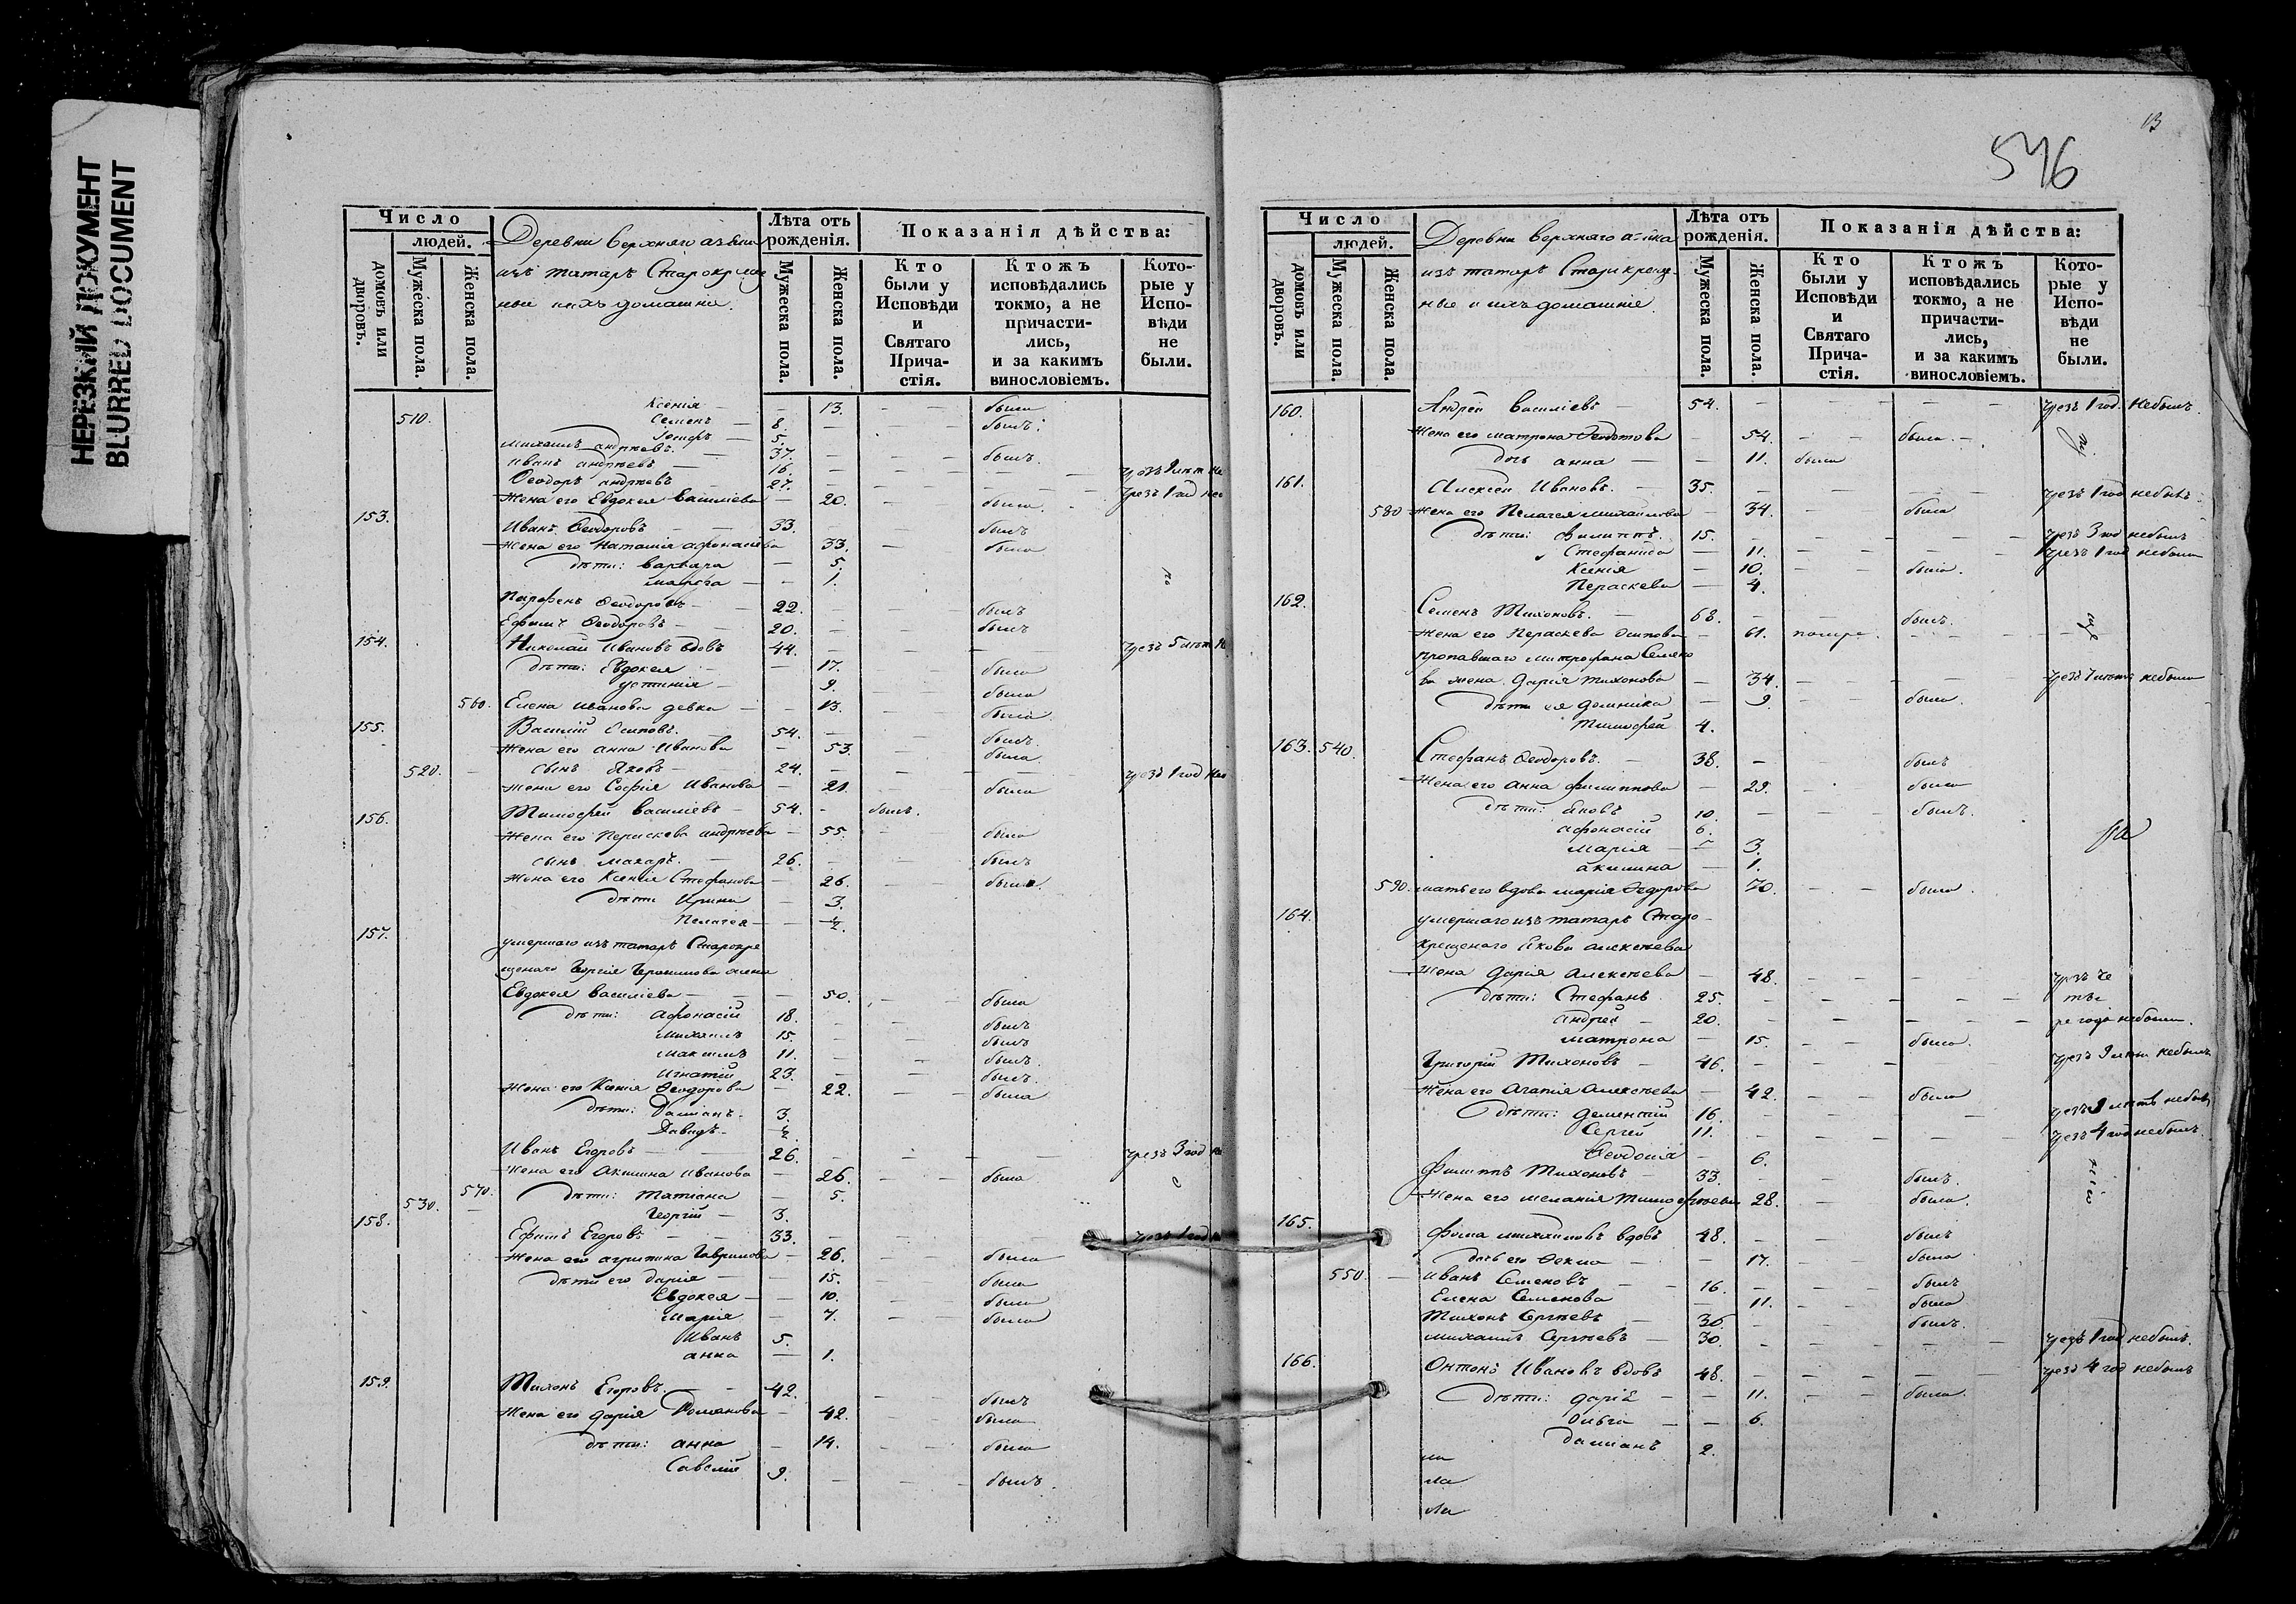 НЕРЕЗКИЙ ДОКУМЕНТ
BLURRED DOCUMENT
Число
людей.
домовъ или дворовъ.
Мужеска пола.
Женска пола.
Деревни Верхняго
изъ татаръ
ные и ихъ домашніе.
Лѣта отъ рожденія.
Мужеска пола.
Женска пола.
Показанія дѣйства:
Кто были у Исповѣди и Святаго Причастія.
Ктожъ исповѣдались токмо, а не причастились, и за какимъ винословіемъ.
Которые у Исповѣди не были.
Ксенія — 13. — была
510. Семенъ — 8. — былъ.
5.
Михаилъ Андреевъ. 37. — былъ.
Иванъ Андреевъ — 16. —
Ѳеодоръ Андреевъ — 27. — чрезъ 1 год
Жена его Евдокея Василіева — 20. — была
153. Иванъ Ѳеодоровъ — 33. — былъ
Жена его Наталія Афонасіева 33. — была
дѣти: Варвара — 5.
Марѳа — 1.
Парфенъ Ѳеодоровъ — 22. — былъ
Ефимъ Ѳеодоровъ — 20. — былъ
154. Николай Ивановъ вдовъ 44. — чрезъ 5 лѣтъ
дѣти: Евдокея — 17. — была
Устинія — 9. — была
560. Елена Иванова девка — 13. — была
155. Василій Осиповъ. 54. — былъ.
Жена его Анна Иванова — 53. — была
520. сынъ Яковъ — 24. — чрезъ 1 год
Жена его Софія Иванова — 21. — была
156. Тимофей Василіевъ — 54. — былъ.
Жена его Пераскева Андреева — 55. — была
сынъ Макаръ. — 26. — былъ
Жена его Ксенія Стефанова — 26. — была.
дѣти Ирина — 3.
Пелагея — ½.
157. умершаго изъ татаръ Старокре
щенаго Георгія жена
Евдокея Василіева — 50. — была
дѣти: Афонасій 18. — былъ
Михаилъ 15. — былъ
Максимъ 11. — былъ.
Игнатій 23. — былъ.
Жена его Ксенія Ѳеодорова — 22. — была
дѣти: Даміанъ. 3.
Давидъ ½.
Иванъ Егоровъ — 26. — чрезъ 3 год
Жена его Акилина Иванова — 26. — была
570. дѣти: Татіана — 5.
530. Георгій — 3.
158. Ефимъ Егоровъ — 33. — чрезъ 1 год
Жена его Агрипина Гаврилова — 26. — была
дѣти его Дарія — 15. — была
Евдокея — 10. — была
Марія — 7. — была
Иванъ 5.
Анна — 1.
159. Тихонъ Егоровъ. — 42. — былъ
Жена его Дарія Романова — 42. — была
дѣти: Анна — 14. — была
Савелій 9. — былъ.
13
546
Число
людей.
домовъ или дворовъ.
Мужеска пола.
Женска пола.
Деревни Верхняго
изъ татаръ Старокреще-
ные и ихъ домашніе.
Лѣта отъ рожденія.
Мужеска пола.
Женска пола.
Показанія дѣйства:
Кто были у Исповѣди и Святаго Причастія.
Ктожъ исповѣдались токмо, а не причастились, и за какимъ винословіемъ.
Которые у Исповѣди не были.
160. Андрей Василіевъ — 54. — чрезъ 1 год. небылъ.
Жена его Матрона Ѳедотова — 54. — была.
дочь Анна — 11. была
161. Алексей Ивановъ. — 35. — чрезъ 1 год небылъ.
580 Жена его Пелагея Михаилова — 34. — была
дѣти: Филиппъ. 15. — чрезъ 3 год небылъ
Стефанида — 11. — чрезъ 1 год небыла
Ксенія — 10. — была.
Пераскева — 4.
162. Семенъ Тихоновъ. — 68. — былъ.
Жена его Пераскева Осипова — 61.
пропавшаго Митрофана Семено
ва жена Дарія Тихонова — 34. — небыла
дѣти ея Домника — 9. — была.
Тимофей 4.
163. 540. Стефанъ Ѳеодоровъ. — 38. — былъ
Жена его Анна Филиппова — 29. — была
дѣти: Яковъ 10. — былъ.
Афонасій 6.
Марія — 3.
Акилина — 1.
590. мать его вдова Марія Ѳедорова 70. — была.
164. умершаго изъ татаръ Старо-
крещенаго Якова Алексѣева
Жена Дарія Алексѣева — 48. — чрезъ че
дѣти: Стефанъ 25. — ты
Андрей — 20. — ре года небыли.
Матрона — 15. — была.
Григорій Тихоновъ — 46. — небылъ
Жена его Агапія Алексѣева — 42. — была
дѣти: Дементій 16. — небылъ
Сергей 11. — чрезъ 4 год небылъ.
Ѳеодосія — 6.
Филиппъ Тихоновъ — 33. — былъ.
Жена его Меланія Тимофѣева 28. — была.
165. Фома Михаиловъ вдовъ 48. — былъ
дочь его Ѳекла — 17. — была
550. Иванъ Семеновъ — 16. — былъ
Елена Семенова — 11. — была
Тихонъ Сергѣевъ — 36. — былъ.
Михаилъ Сергѣевъ — 30. — чрезъ 1 год небылъ.
166. Онтонъ Ивановъ вдовъ 48. — чрезъ 4 год небылъ
дѣти: Дарія — 11. — была.
Ольга — 6.
Даміанъ 2.